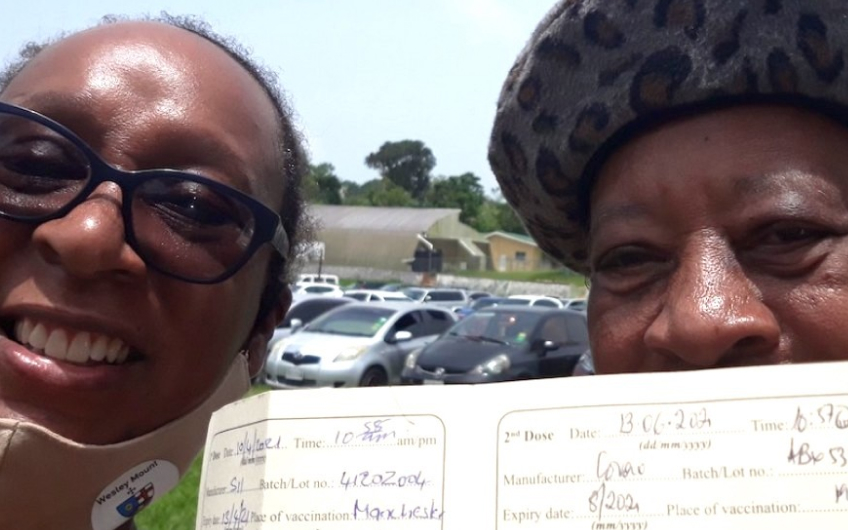 Wesley Mount
Dose Date: Time: 10 55 am am/pm
Manufacturer: SII Batch/Lot no.: 4120Z004
Expiry date: Place of vaccination: Manchester
2nd Dose Date: 13-06-2021 Time: 10:57
(dd/mm/yyyy)
Manufacturer: Batch/Lot no.:
Expiry date: 8/2021 Place of vaccination:
(mm/yyyy)